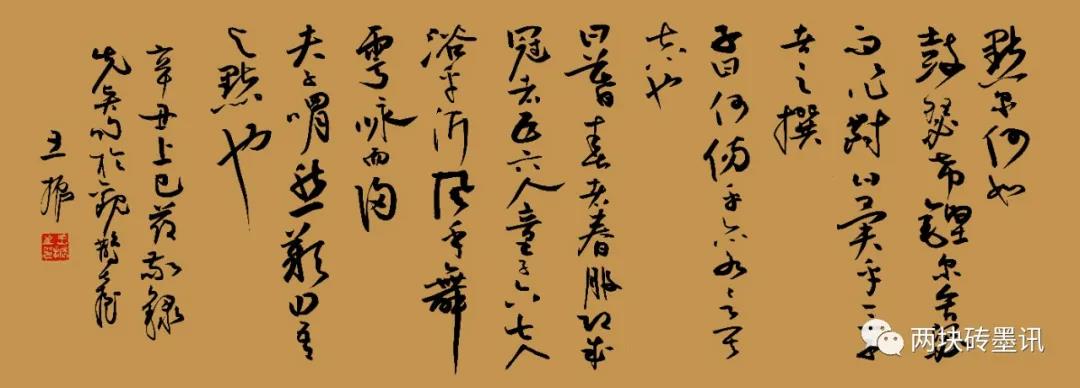 點爾何如
鼓瑟希鏗爾舍瑟
而作對曰異乎三子
者之撰
子曰何傷乎亦各言其
志也
曰暮春者春服既成
冠者五六人童子六七人
浴乎沂風乎舞
雩詠而歸
夫子喟然歎曰吾
与點也
辛丑上巳敬錄
先於觀
王振
两块砖墨讯